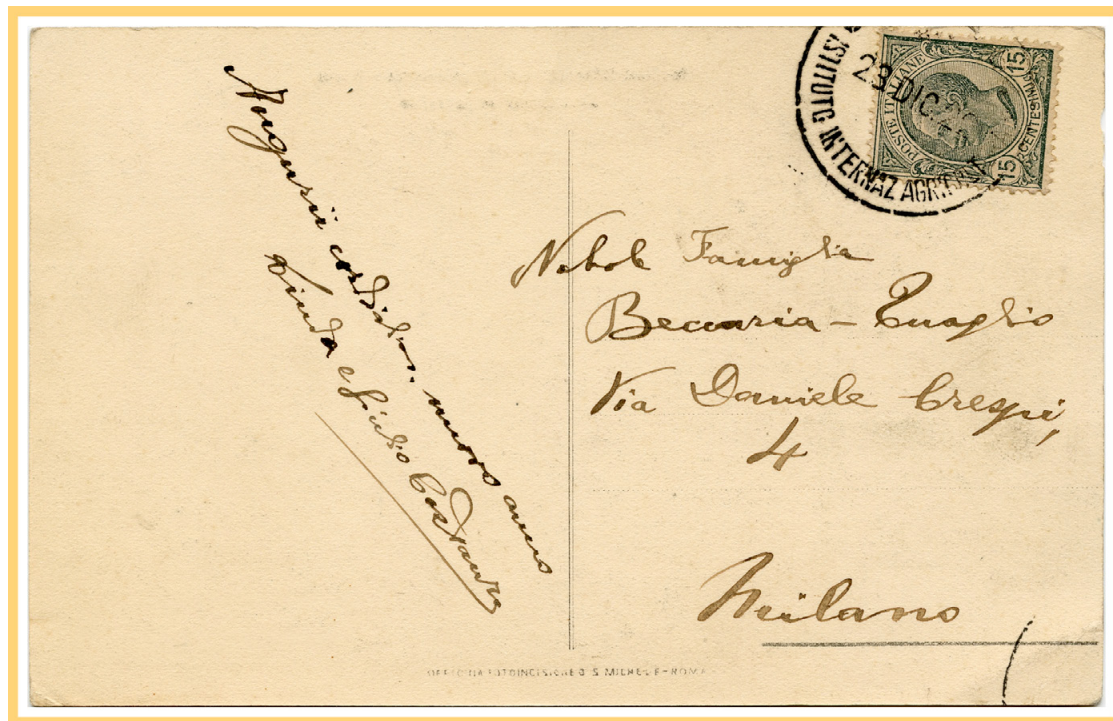 Augurii cordialis. nuovo anno
Linda e Giulio
ISTITUTO INTERNAZ AGRICOLT
23 DIC
POSTE ITALIANE
15 CENTESIMI 15
Nobile Famiglia
Beccaria - Quaglio
Via Daniele Crespi,
4
Milano
OFFICINA FOTOINCISIONE D. S. MICHELE - ROMA